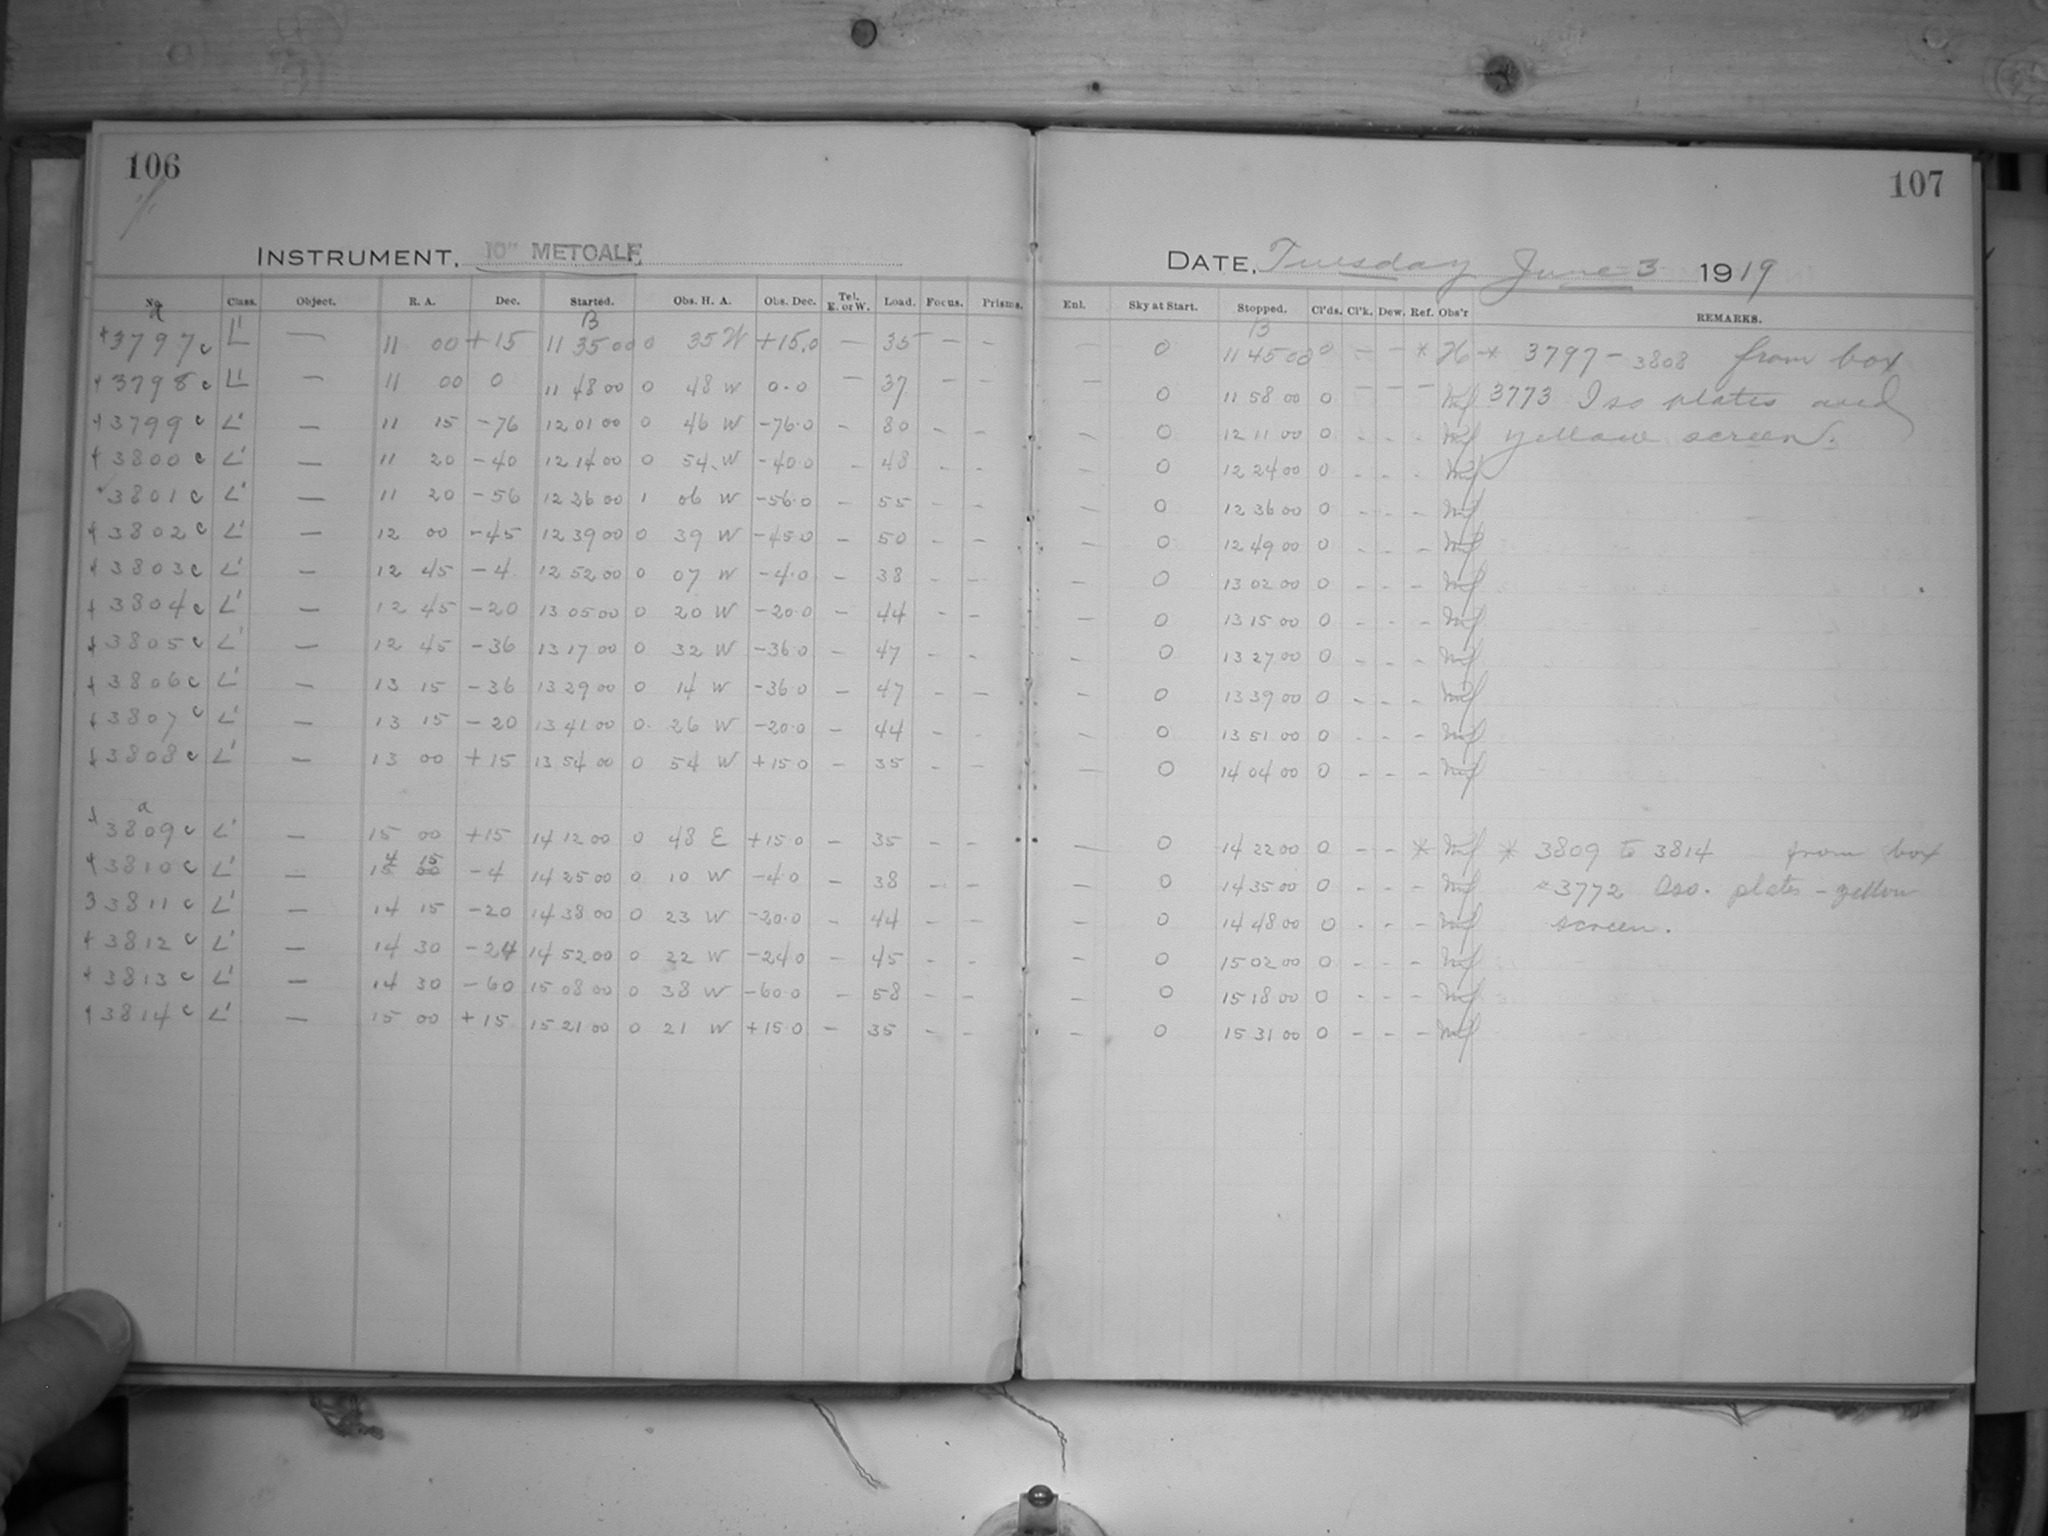 106
107
INSTRUMENT. 10" METCALF
DATE, Tuesday June 3 1919
No. Class. Object. R. A. Dec. Started. Obs. H. A. Obs. Dec. Tel. E. or W. Load. Focus. Prisms. Enl. Sky at Start. Stopped. Cl'ds. Cl'k. Dew. Ref. Obs'r REMARKS.
a B B
3797 c L' — 11 00 +15 11 35 00 0 35 W +15.0 — 35 — — — 0 11 45 00 0 — — * H * 3797 - 3808 from box
3798 c L' — 11 00 0 11 48 00 0 48 W 0.0 — 37 — — — 0 11 58 00 0 — — — 3773 Iso plates and
3799 c L' — 11 15 -76 12 01 00 0 46 W -76.0 - 80 - - — 0 12 11 00 0 - - - yellow screen.
3800 c L' — 11 20 -40 12 14 00 0 54 W -40.0 - 48 - - — 0 12 24 00 0 - - -
3801 c L' — 11 20 -56 12 26 00 1 06 W -56.0 - 55 - - — 0 12 36 00 0 - - -
3802 c L' — 12 00 -45 12 39 00 0 39 W -45.0 - 50 - - — 0 12 49 00 0 - - -
3803 c L' — 12 45 -4 12 52 00 0 07 W -4.0 - 38 - - — 0 13 02 00 0 - - -
3804 c L' — 12 45 -20 13 05 00 0 20 W -20.0 - 44 - - — 0 13 15 00 0 - - -
3805 c L' — 12 45 -36 13 17 00 0 32 W -36.0 - 47 - - — 0 13 27 00 0 - - -
3806 c L' — 13 15 -36 13 29 00 0 14 W -36.0 - 47 - - — 0 13 39 00 0 - - -
3807 c L' — 13 15 -20 13 41 00 0 26 W -20.0 - 44 - - 0 13 51 00 0 - - -
3808 c L' — 13 00 +15 13 54 00 0 54 W +15.0 - 35 - - — 0 14 04 00 0 - - -
a
3809 c L' — 15 00 +15 14 12 00 0 48 E +15.0 - 35 - - — 0 14 22 00 0 - - * * 3809 to 3814 from box
4 15
3810 c L' — 15 00 -4 14 25 00 0 10 W -4.0 - 38 - - — 0 14 35 00 0 - - - 3772 Iso. plates - yellow
3811 c L' — 14 15 -20 14 38 00 0 23 W -20.0 - 44 - - — 0 14 48 00 0 - - - screen.
3812 c L' — 14 30 -24 14 52 00 0 22 W -24.0 - 45 - - — 0 15 02 00 0 - - -
3813 c L' — 14 30 -60 15 08 00 0 38 W -60.0 - 58 - - — 0 15 18 00 0 - - -
3814 c L' — 15 00 +15 15 21 00 0 21 W +15.0 - 35 - - — 0 15 31 00 0 - - -